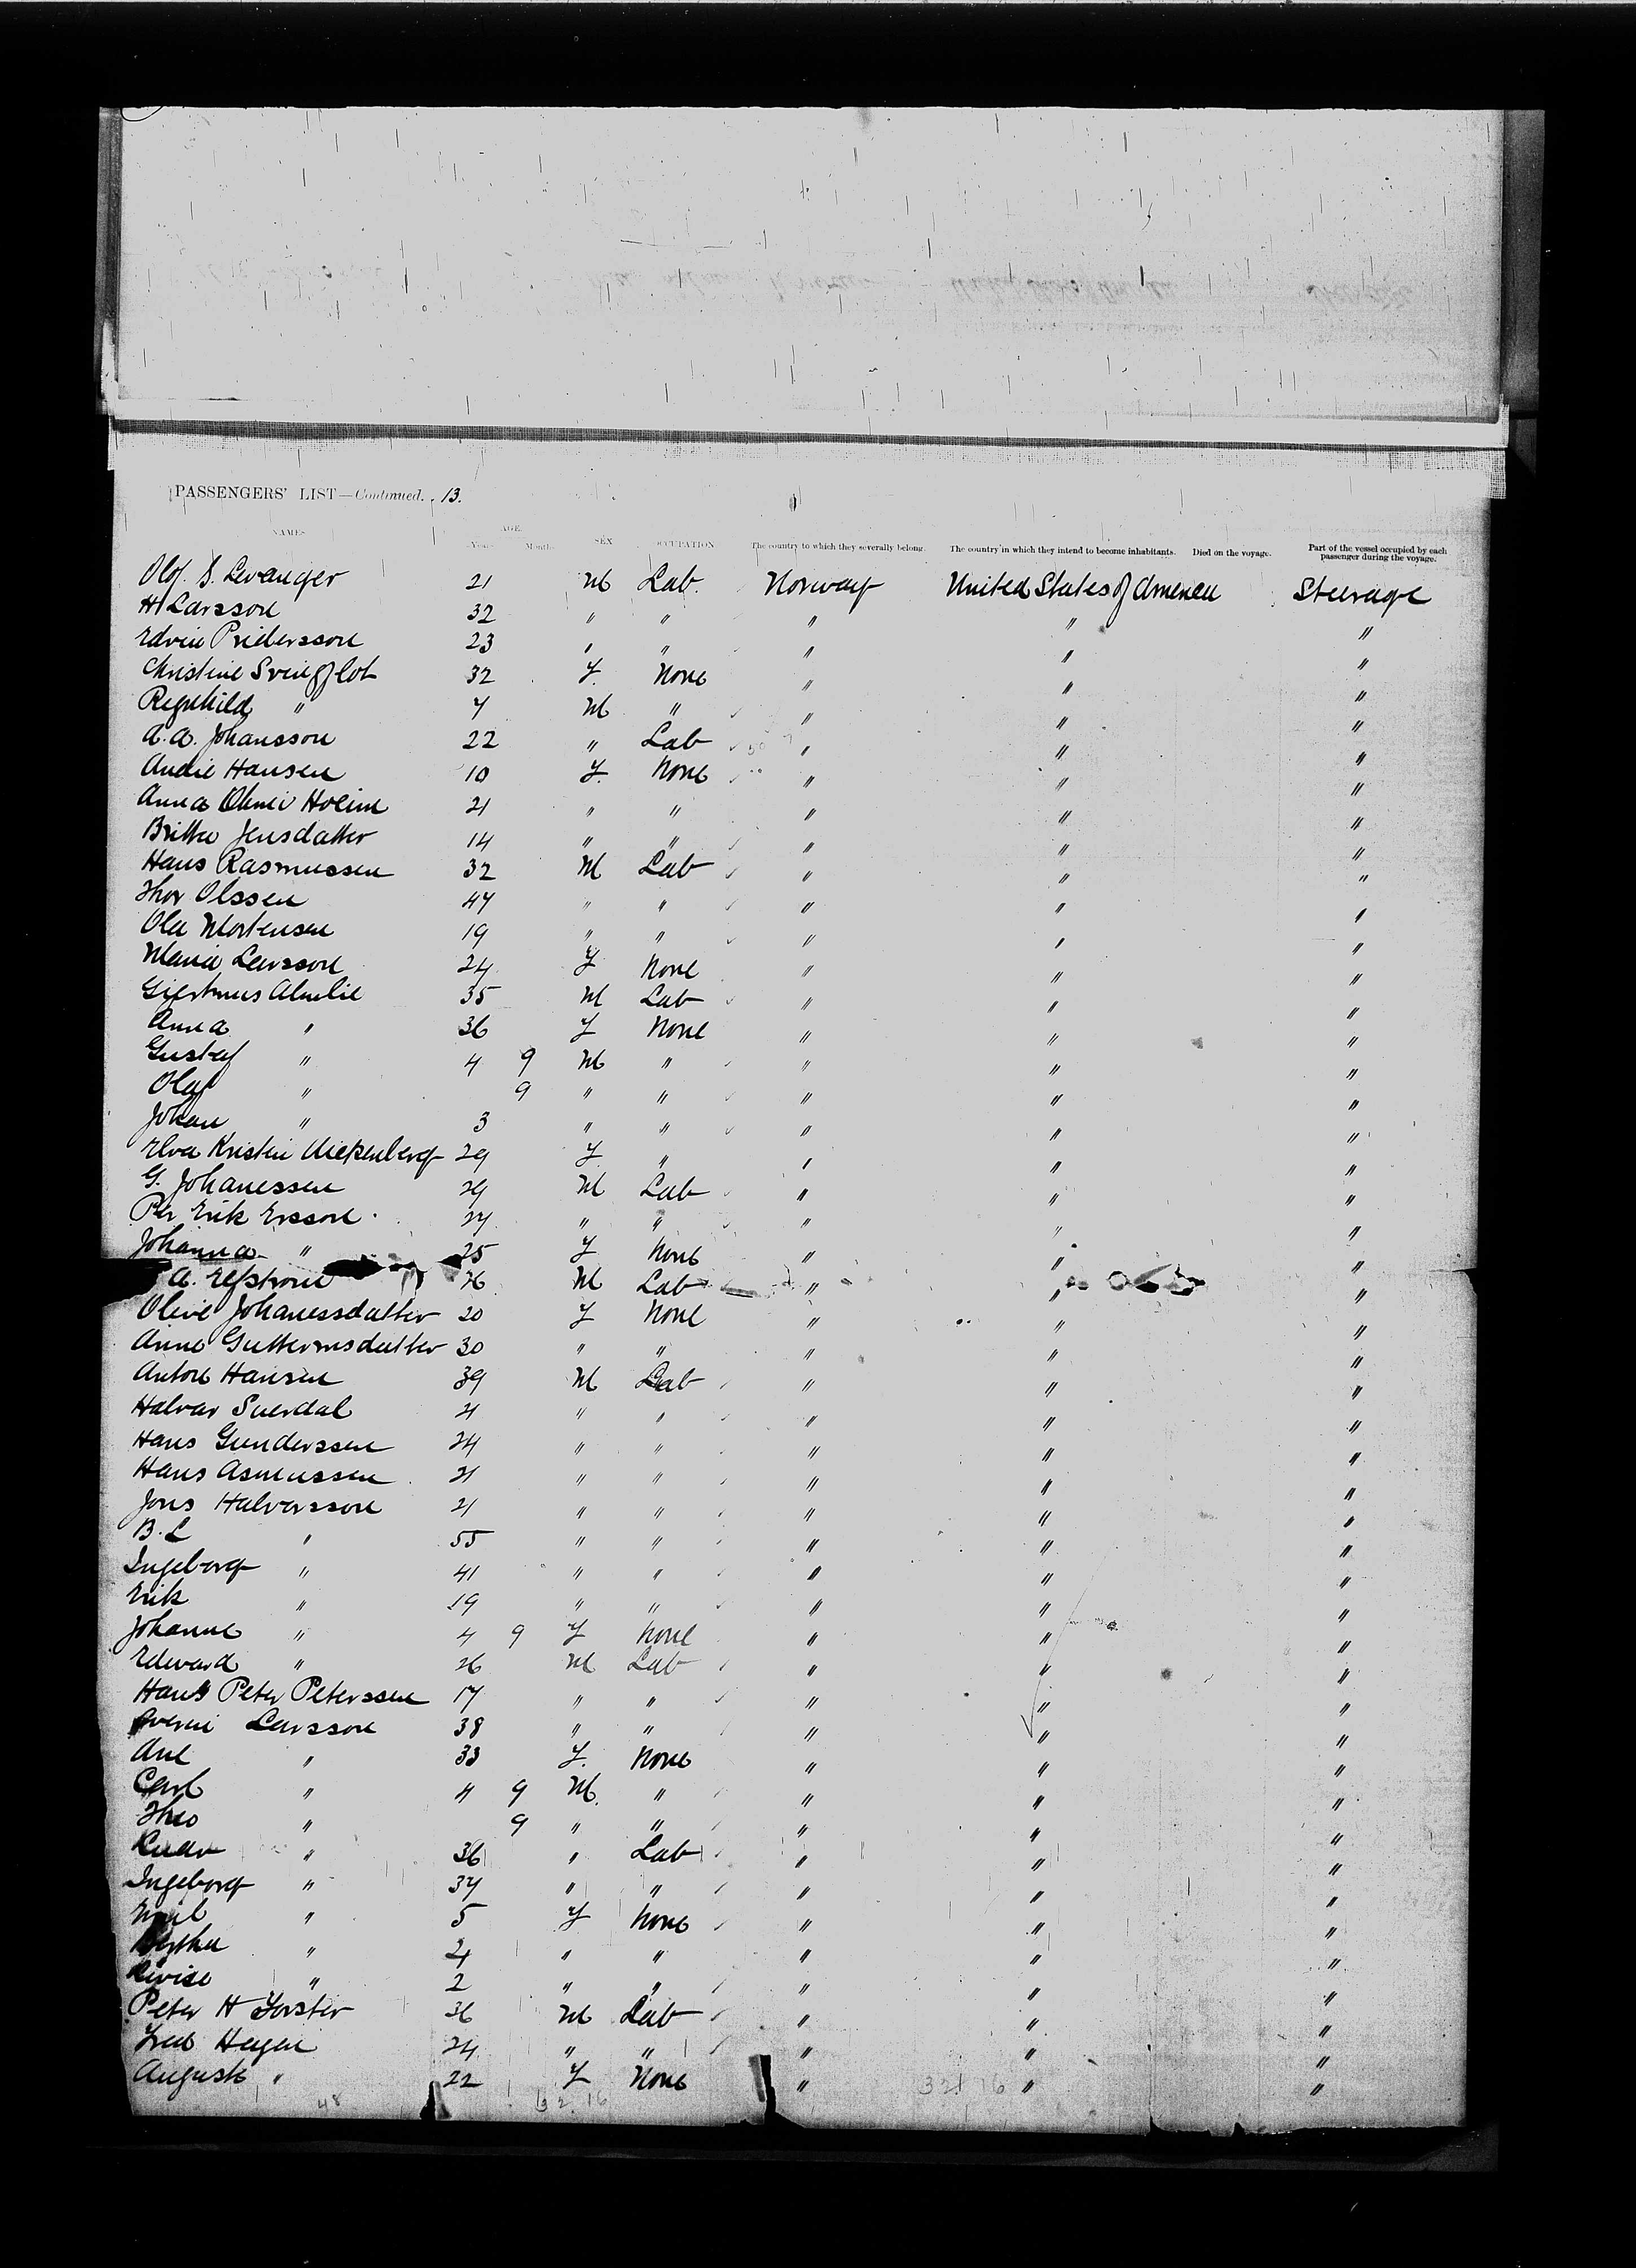 PASSENGERS' LIST—Continued. 13.
NAMES AGE. Years Months SEX OCCUPATION The country to which they severally belong. The country in which they intend to become inhabitants. Died on the voyage. Part of the vessel occupied by each passenger during the voyage.
Olof. S. Levanger 21 M Lab. Norway United States of America Steerage
H Larsson 32 " " " " "
Edvin 23 " " " " "
Christine 32 F. None " " "
" 7 M " " " "
A. A. Johansson 22 " Lab " " "
Hansen 10 F. None " " "
Anna 21 " " " " "
Jensdatter 14 " " " " "
Hans Rasmussen 32 M Lab " " "
Thor Olssen 47 " " " " "
Ole Mortensen 19 " " " " "
Maria Larsson 24 F None " " "
35 M Lab " " "
Anna " 36 F None " " "
Gustaf " 4 9 M " " " "
Olaf " 9 " " " " "
Johan " 3 " " " " "
Kristin 29 F " " " "
G. Johanessen 29 M Lab " " "
Per Erik Ersson 27 " " " " "
Johanna " 25 F None " " "
A. Elfstrom 26 M Lab " " "
Olive Johanessdatter 20 F None " " "
Anne Guttermsdatter 30 " " " " "
Anton Hansen 39 M Lab " " "
Halvar 21 " " " " "
Hans Gunderssen 24 " " " " "
Hans Asmussen 21 " " " " "
Jons Halvorsson 21 " " " " "
B. L " 55 " " " " "
Ingeborg " 41 " " " " "
Erik " 19 " " " " "
Johanne " 4 9 F None " " "
Edward " 26 M Lab " " "
Hans Peter Peterssen 17 " " " " "
Larsson 38 " " " " "
Ane " 33 F. None " " "
Carl " 4 9 M. " " " "
Theo " 9 " " " " "
" 36 " Lab " " "
Ingeborg " 37 " " " " "
" 5 F None " " "
" 4 " " " " "
" 2 " " " " "
Peter H Forster 36 M Lab " " "
Fred Hagen 24 " " " " "
August " 22 F None " " "
48 32 16 32 16